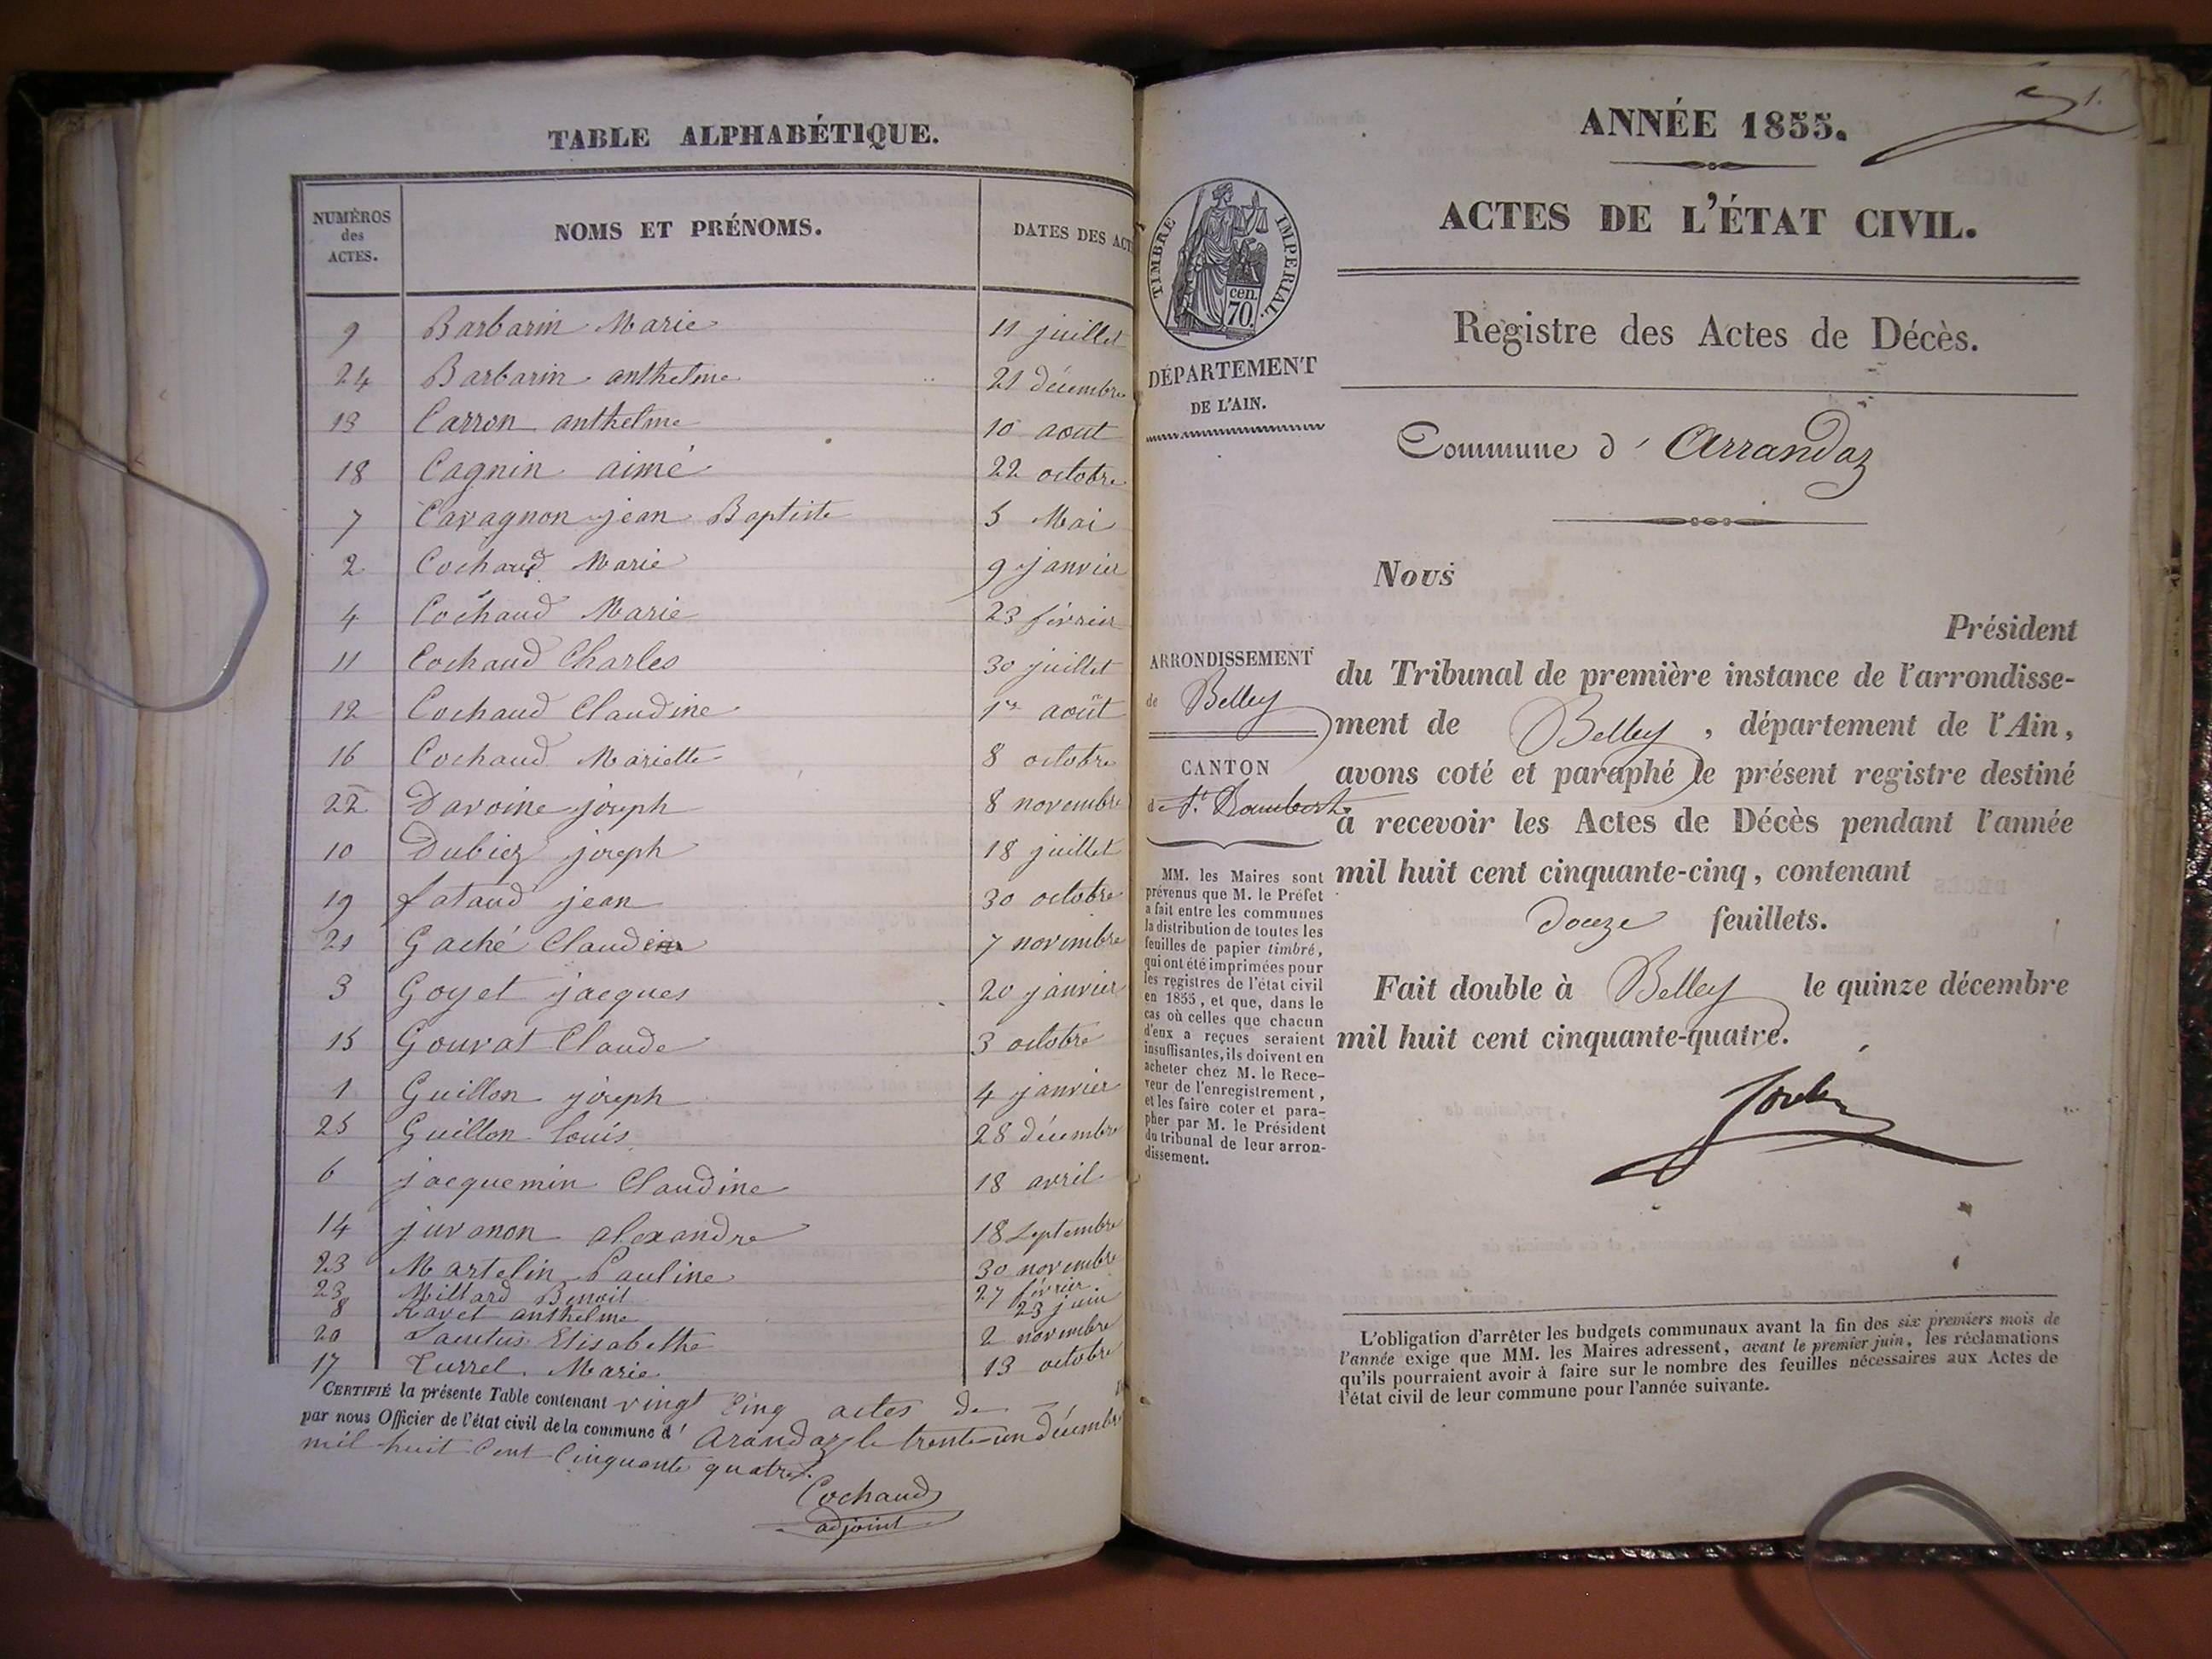 TABLE ALPHABÉTIQUE.
NUMÉROS des ACTES. NOMS ET PRÉNOMS. DATES DES ACT
9 Barbarin Marie 11 juillet
24 Barbarin anthelme 21 décembre
13 Carron anthelme 10 aout
18 Cagnin aimé 22 octobre
7 Cavagnon jean Baptiste 5 Mai
2 Cochaud Marie 9 janvier
4 Cochaud Marie 23 février
11 Cochaud Charles 30 juillet
12 Cochaud Claudine 1er août
16 Cochaud Mariette 8 octobre
22 Davoine joseph 8 novembre
10 Dubiez joseph 18 juillet
19 fataud jean 30 octobre
21 Gaché 7 novembre
3 Goyet jacques 20 janvier
15 Gouvat Claude 3 octobre
1 Guillon joseph 4 janvier
25 Guillon louis 28 décembre
6 jacquemin Claudine 18 avril
14 juvanon alexandre 18 Septembre
23 Martelin Pauline 30 novembre
23 Millard Benoit 27 février.
8 Ravet anthelme 23 juin
20 Elisabethe 2 novembre
17 Turrel Marie 13 octobre
CERTIFIÉ la présente Table contenant vingt Cinq actes de
par nous Officier de l'état civil de la commune d' Arandaz le trente un décembre
mil huit Cent Cinquante quatre.
Cochaud
adjoint
1.
ANNÉE 1855.
ACTES DE L'ÉTAT CIVIL.
TIMBRE IMPERIAL.
cen. 70.
Registre des Actes de Décès.
DÉPARTEMENT
DE L'AIN.
Commune d' Arrandaz
Nous
Président
ARRONDISSEMENT
de Belley
CANTON
de St. Rambert
du Tribunal de première instance de l'arrondisse-
ment de Belley, département de l'Ain,
avons coté et paraphé le présent registre destiné
à recevoir les Actes de Décès pendant l'année
mil huit cent cinquante-cinq, contenant
douze feuillets.
Fait double à Belley le quinze décembre
mil huit cent cinquante-quatre.
MM. les Maires sont
prévenus que M. le Préfet
a fait entre les communes
la distribution de toutes les
feuilles de papier timbré,
qui ont été imprimées pour
les registres de l'état civil
en 1855, et que, dans le
cas où celles que chacun
d'eux a reçues seraient
insuffisantes, ils doivent en
acheter chez M. le Rece-
veur de l'enregistrement,
et les faire coter et para-
pher par M. le Président
du tribunal de leur arron-
dissement.
L'obligation d'arrêter les budgets communaux avant la fin des six premiers mois de
l'année exige que MM. les Maires adressent, avant le premier juin, les réclamations
qu'ils pourraient avoir à faire sur le nombre des feuilles nécessaires aux Actes de
l'état civil de leur commune pour l'année suivante.